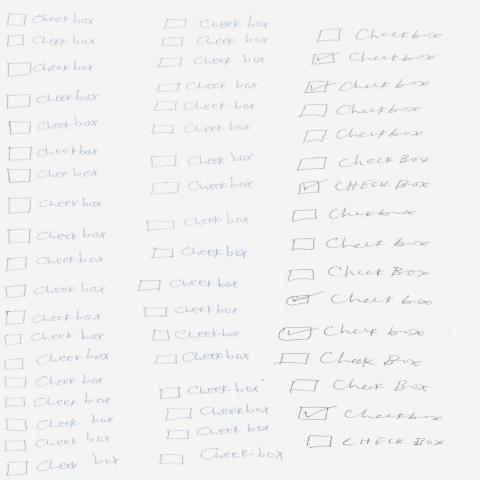 Checkbox
Check box
Checkbox
Check box
Check box
Checkbox
Check box
Check box
Check box
Check box
Check box
Check box
Check box
Check box
Check box
Check box
Check box
Check box
Check box
Check box
Check box
Check box
Check box
Check box
Check box
Check box
Check box
Check box
Check box
Check box
Checkbox
Checkbox
Checkbox
Check box
Checkbox
Check box
Check box
Checkbox
Checkbox
Checkbox
Checkbox
Checkbox
Check Box
CHECK BOX
Checkbox
Check box
Check Box
Check box
Check box
Check Box
Check Box
Checkbox
CHECK BOX